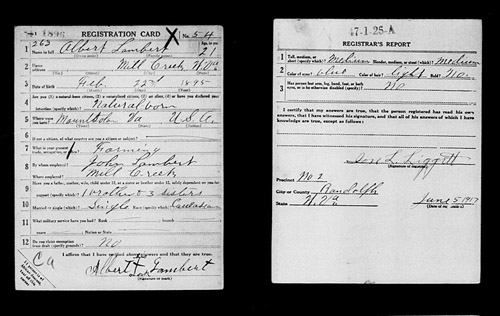 1896 REGISTRATION CARD X No. 54
263
1 Name in full Albert Lambert Age, in yrs. 21
2 Home address Mill Creek W. Va
3 Date of birth Feb 22nd 1895
Natural born
5 Where were you born? Va U.S.A.
6 If not a citizen, of what country are you a citizen or subject?
7 What is your present trade, occupation, or office? Farming
8 By whom employed? John Lambert
Where employed? Mill Creek
brother & 3 sisters
10 Married or single (which)? Single Race (specify which)? Caucasian
11 What military service have you had? Rank branch
years Nation or State
12 Do you claim exemption from draft (specify grounds)? No
I affirm that I have verified above answers and that they are true.
Albert Lambert
(Signature or mark)
47-1-25-A
REGISTRAR'S REPORT
1 Tall, medium, or short (specify which)? Medium Slender, medium, or stout (which)? Medium
2 Color of eyes? Blue Color of hair? Light Bald? No
3 Has person lost arm, leg, hand, foot, or both eyes, or is he otherwise disabled (specify)? No
I certify that my answers are true, that the person registered has read his own answers, that I have witnessed his signature, and that all of his answers of which I have knowledge are true, except as follows:
L. Liggett
(Signature of registrar)
Precinct No 2
City or County Randolph
State W. Va June 5 1917
(Date of registration)